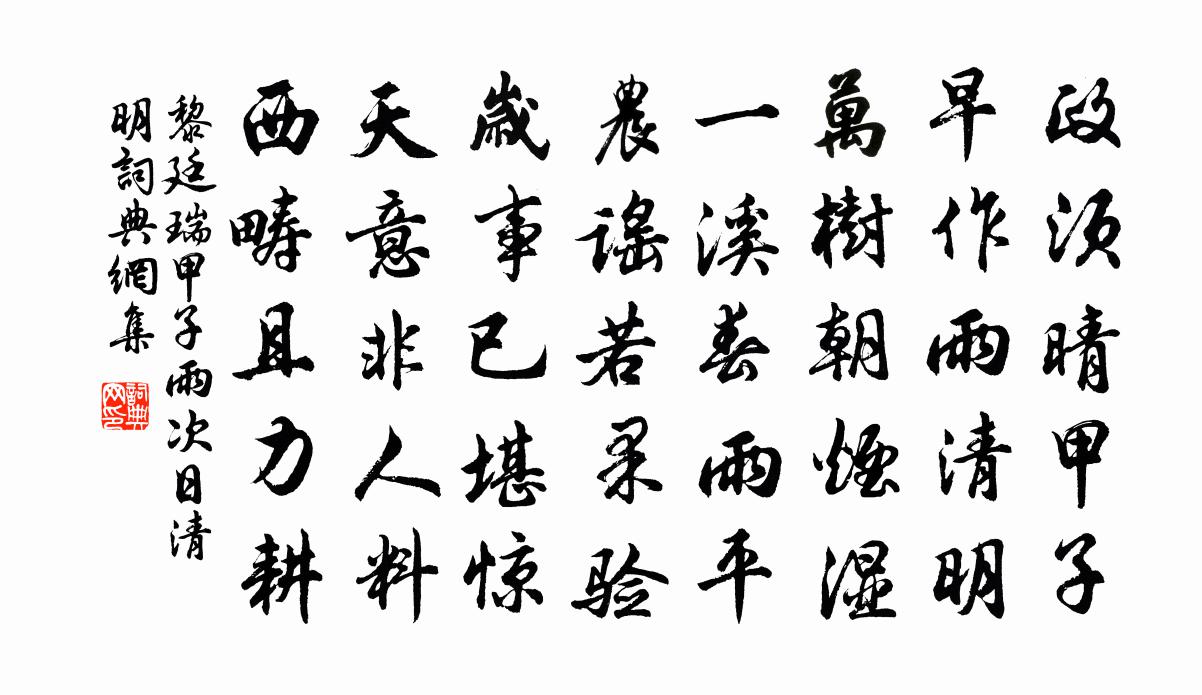 政须晴甲子
早作雨清明
萬樹朝煙湿
一溪春雨平
農谣若果验
歳事已堪惊
天意非人料
西疇且力耕
黎廷瑞甲子雨次日清
明詞典網集
詞典
网印